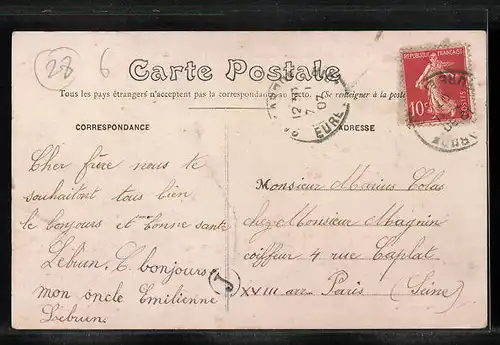 28 6
Carte Postale
Tous les pays étrangers n'acceptent pas la correspondance au recto. (Se renseigner à la poste
RÉPUBLIQUE FRANÇAISE
10c POSTES
12
7
07
EURE
CORRESPONDANCE
ADRESSE
Cher frère nous te
souhaitont tous bien
le bonjours et bonne sante
Lebrun. C. bonjours
mon oncle Emilienne
Lebrun.
J
Monsieur Marius Colas
chez Monsieur Magnin
coiffeur 4 rue Caplat
XVIII arr. Paris (Seine)